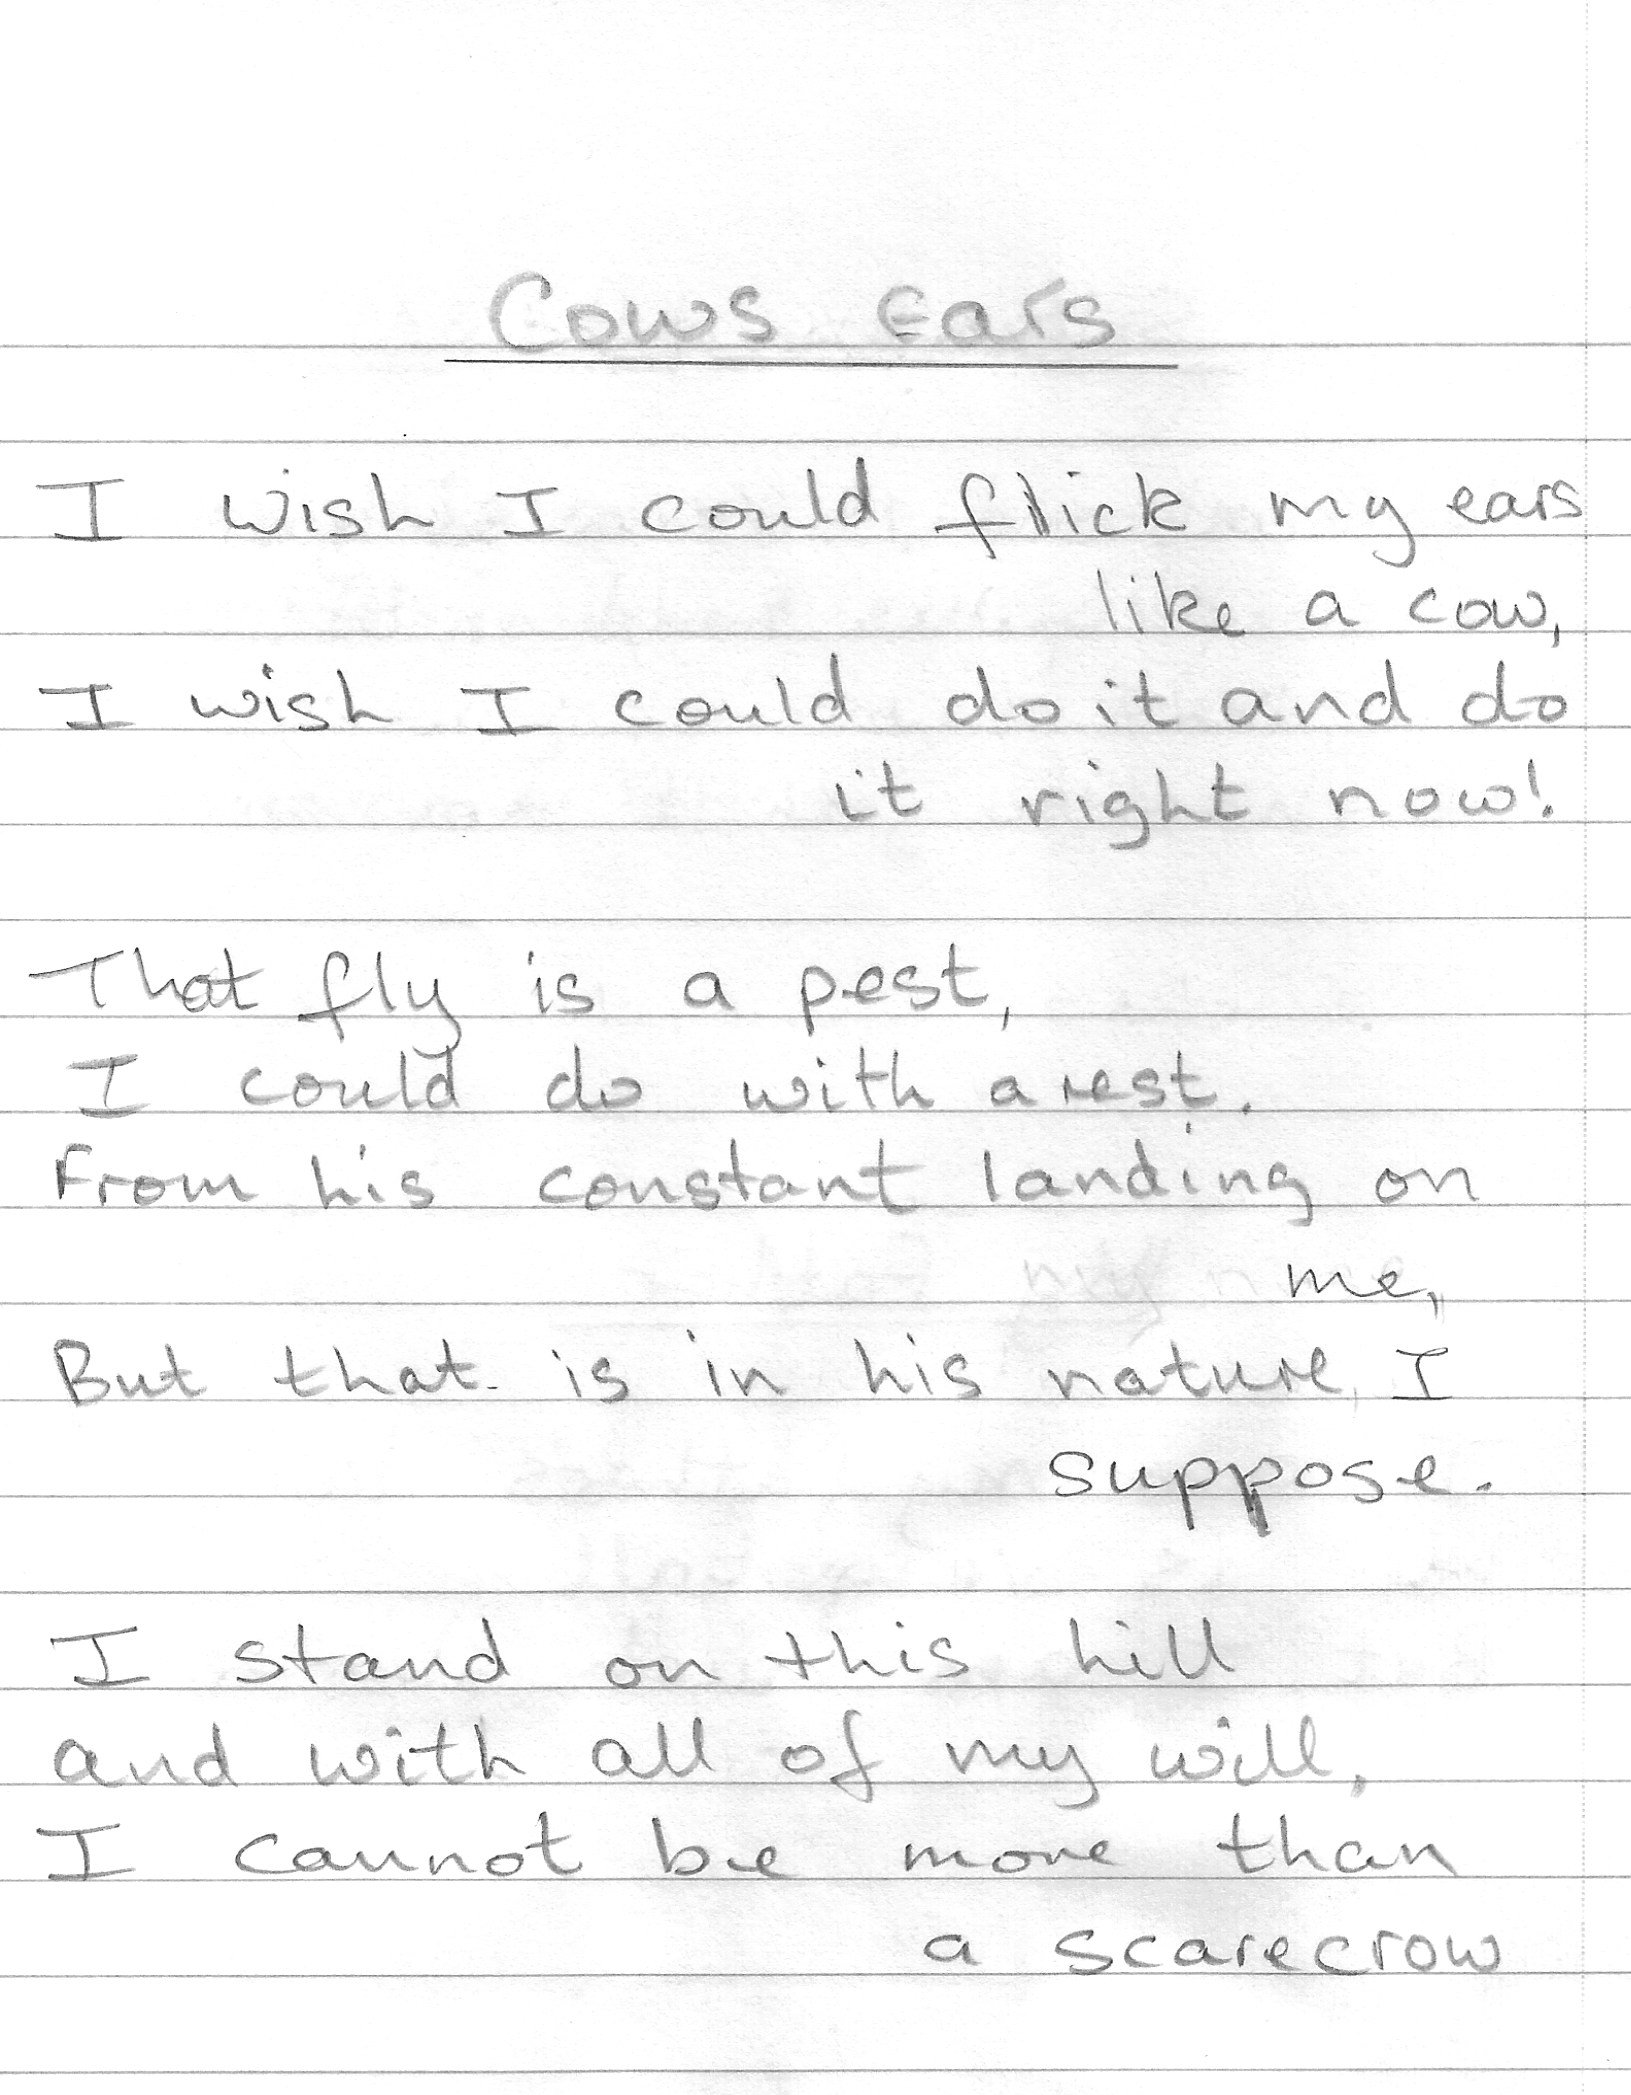 Cows ears
I wish I could flick my ears
like a cow,
I wish I could do it and do
it right now!
That fly is a pest,
I could do with a rest.
From his constant landing on
me,
But that is in his nature, I
suppose.
I stand on this hill
and with all of my will,
I cannot be more than
a scarecrow